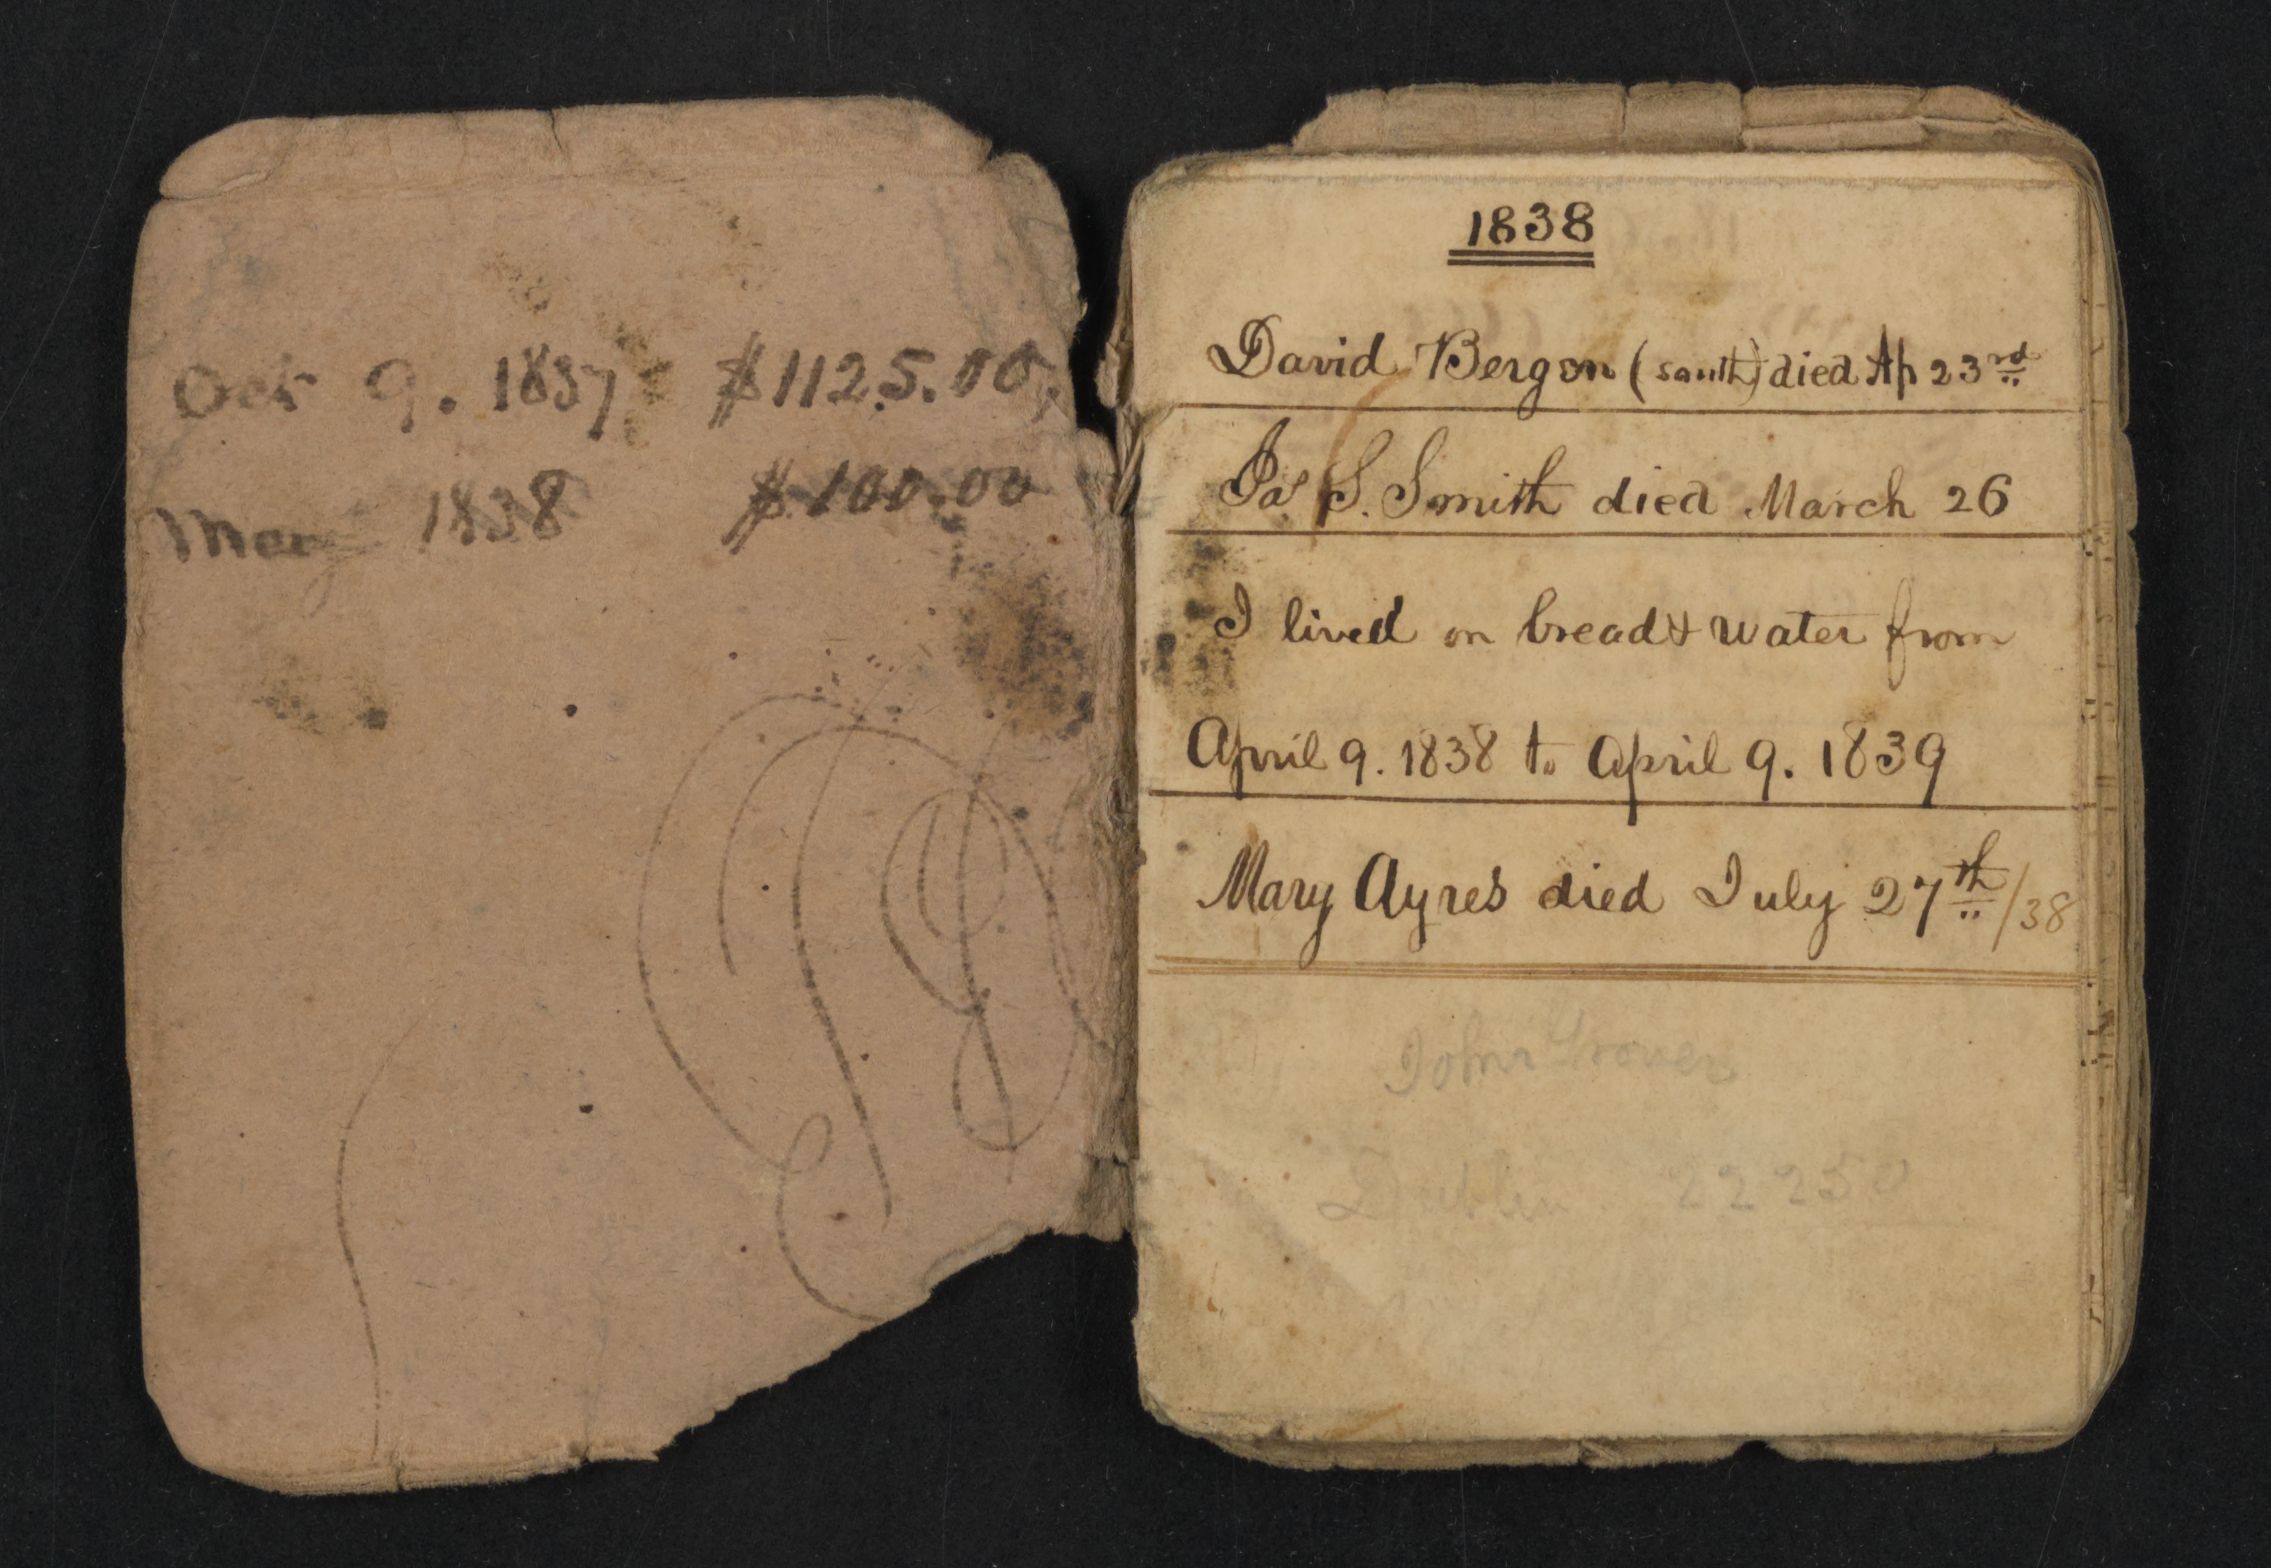 Oct 9. 1837 $1125.00
May 1838 $100.00
1838
David Bergen (south) died Ap 23rd
Jas S. Smith died March 26
I lived on bread & water from
April 9. 1838 to April 9. 1839
Mary Ayres died July 27th/38
John Grover
Dublin 22250